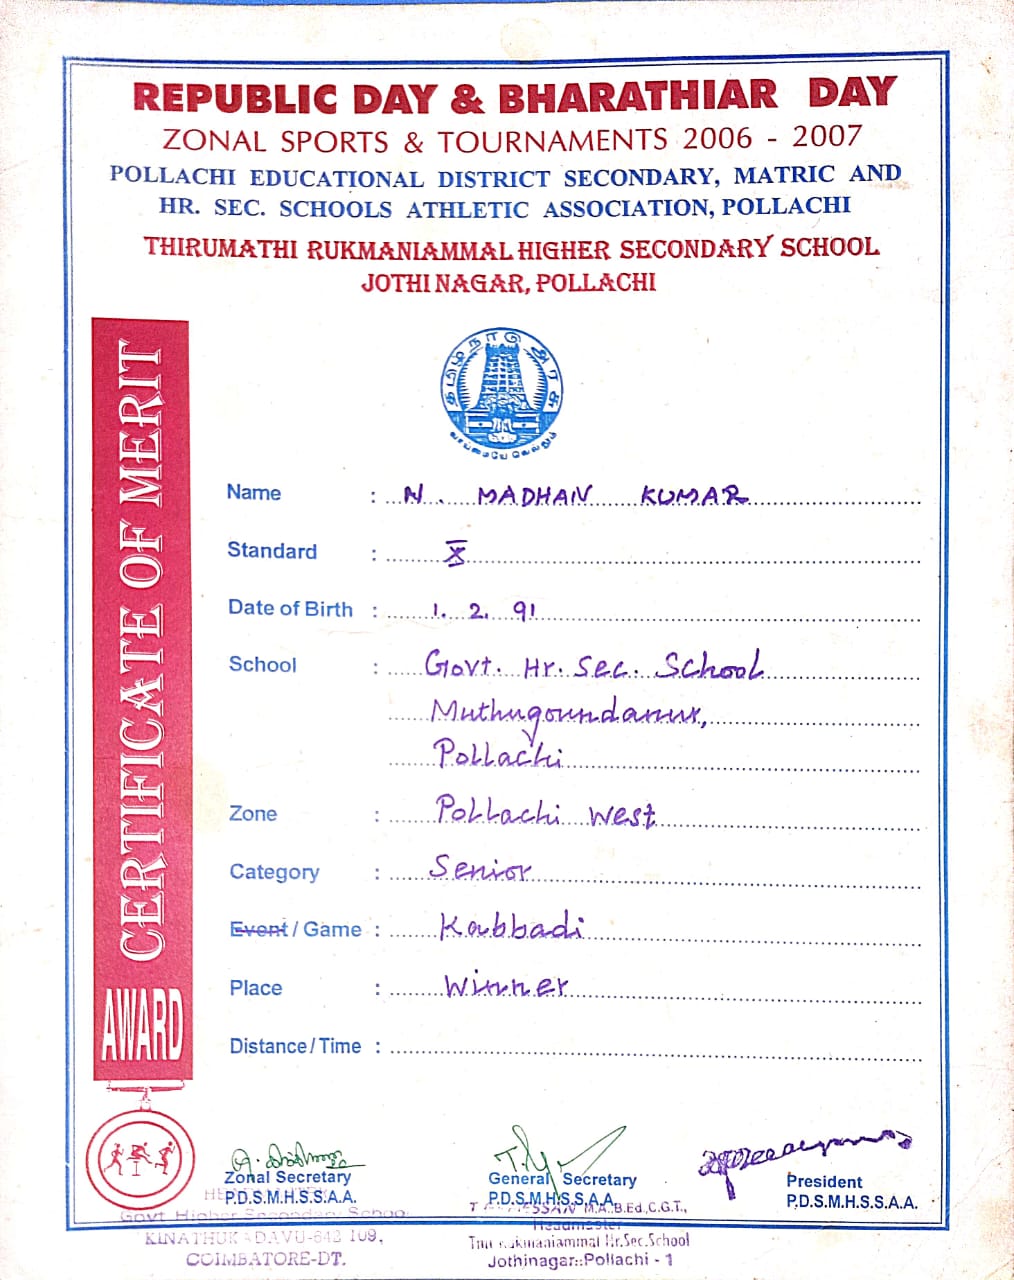 REPUBLIC DAY & BHARATHIAR DAY
ZONAL SPORTS & TOURNAMENTS 2006 - 2007
POLLACHI EDUCATIONAL DISTRICT SECONDARY, MATRIC AND
HR. SEC. SCHOOLS ATHLETIC ASSOCIATION, POLLACHI
THIRUMATHI RUKMANIAMMAL HIGHER SECONDARY SCHOOL
JOTHI NAGAR, POLLACHI
CERTIFICATE OF MERIT
AWARD
தமிழ்நாடு அரசு
வாய்மையே வெல்லும்
Name : N. MADHAN KUMAR
Standard : X
Date of Birth : 1. 2. 91
School : Govt. Hr. Sec. School
Muthugoundanur,
Pollachi
Zone : Pollachi West
Category : Senior
Event / Game : Kabbadi
Place : Winner
Distance / Time :
Zonal Secretary
P.D.S.M.H.S.S.A.A.
General Secretary
P.D.S.M.H.S.S.A.A.
President
P.D.S.M.H.S.S.A.A.
Govt Higher Secondary School
KINATHUKADAVU-642 109,
COIMBATORE-DT.
M.A.B.Ed.,C.G.T.,
Headmaster
Tmt Rukmaniammal Hr.Sec.School
Jothinagar::Pollachi - 1